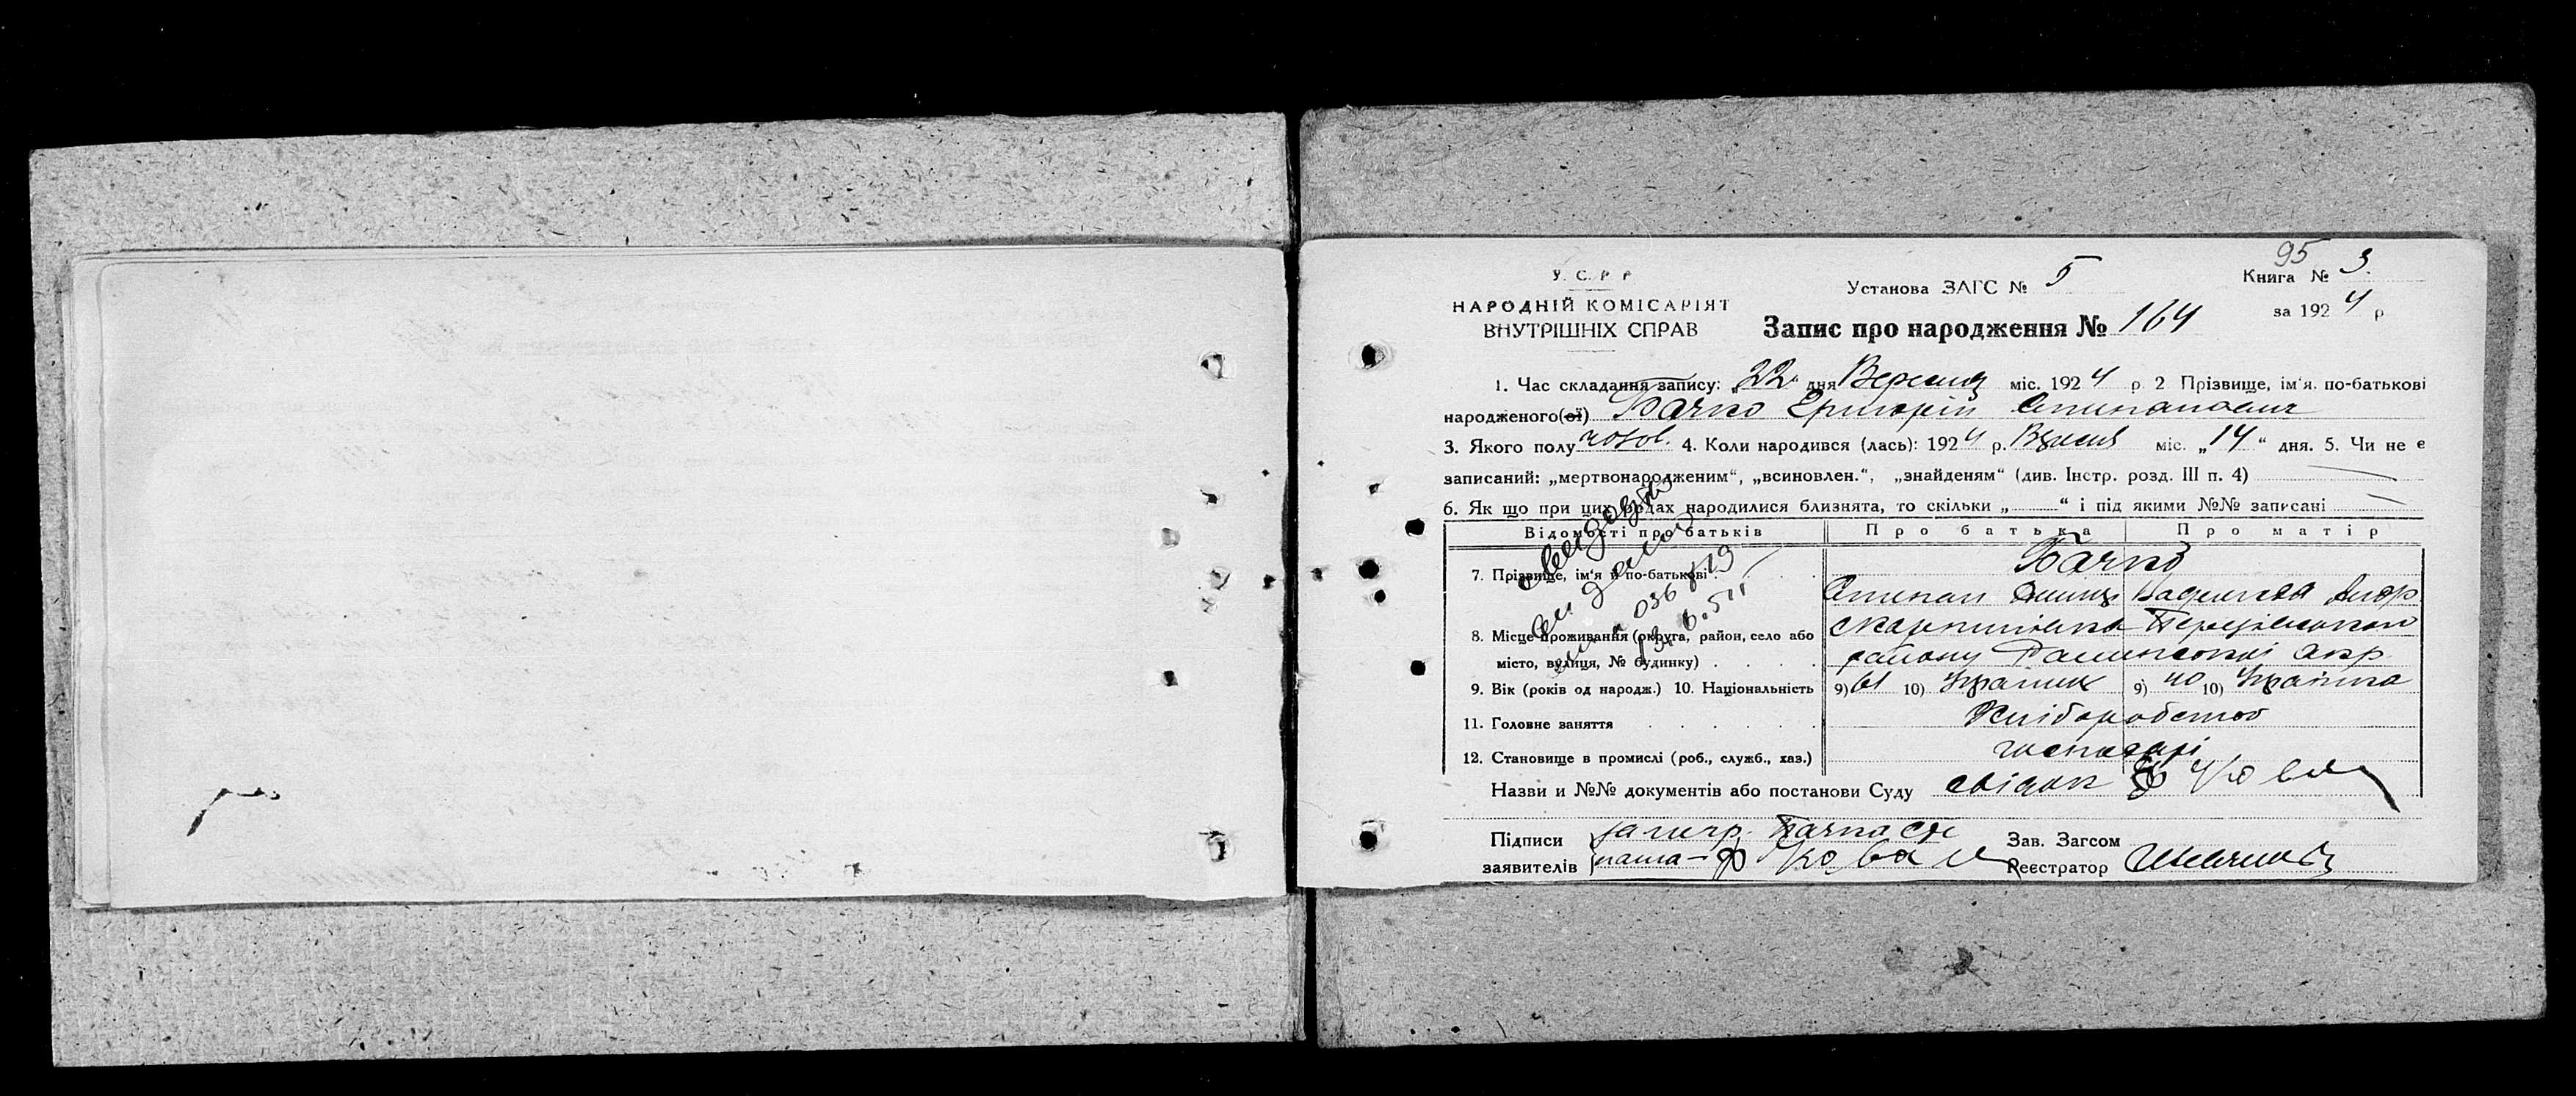 95
У. С. Р. Р.
НАРОДНІЙ КОМІСАРІЯТ
ВНУТРІШНІХ СПРАВ
Установа ЗАГС № 5
Книга № 3
за 1924 р
Запис про народження № 164
1. Час складання запису: „22 дня Вересня міс. 1924 р. 2 Прізвище, ім'я. по-батькові
народженого(ої) Бачко Григорій Степанович
3. Якого полу чолов. 4. Коли народився (лась): 1924 р. Вресня міс. „14“ дня. 5. Чи не є
записаний: „мертвонародженим“, „всиновлен.“, „знайденям“ (див. Інстр. розд. III п. 4)
6. Як що при цих родах народилися близнята, то скільки „ “ і під якими №№ записані
Відомості про батьків Про батька Про матір
7. Прізвище, ім'я й по-батькові Бачко
Степан
8. Місце проживання (округа, район, село або
місто, вулиця, № будинку) району Роменської окр
9. Вік (років од народж.) 10. Національність 9) 61 10) Україн 9) 40 10) Українка
11. Головне заняття Хліборобство
12. Становище в промислі (роб., служб., хаз.) господарі
Назви и №№ документів або постанови Суду свідок Ф Коваль
Підписи за негр. Бачко
заявителів Ф Коваль
Зав. Загсом
Реєстратор